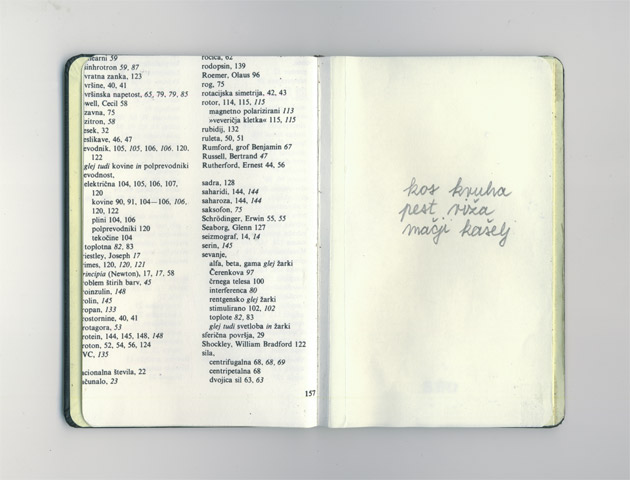 nearni 59
sinhrotron 59, 87
vratna zanka, 123
vršine, 40, 41
vršinska napetost, 65, 79, 79, 85
well, Cecil 58
zavna, 75
zitron, 58
esek, 32
eslikave, 46, 47
evodnik, 105, 105, 106, 106, 120,
122
glej tudi kovine in polprevodniki
evodnost,
električna 104, 105, 106, 107,
120
kovine 90, 91, 104—106, 106,
120, 122
plini 104, 106
polprevodniki 120
tekočine 104
toplotna 82, 83
riestley, Joseph 17
rimes, 120, 120, 121
rincipia (Newton), 17, 17, 58
oblem štirih barv, 45
roinzulin, 148
rolin, 145
ropan, 133
rostornine, 40, 41
rotagora, 53
rotein, 144, 145, 148, 148
roton, 52, 54, 56, 124
VC, 135
acionalna števila, 22
ačunalo, 23
ročica, 62
rodopsin, 139
Roemer, Olaus 96
rog, 75
rotacijska simetrija, 42, 43
rotor, 114, 115, 115
magnetno polarizirani 113
»veveričja kletka« 115, 115
rubidij, 132
ruleta, 50, 51
Rumford, grof Benjamin 67
Russell, Bertrand 47
Rutherford, Ernest 44, 56
sadra, 128
saharidi, 144, 144
saharoza, 144, 144
saksofon, 75
Schrödinger, Erwin 55, 55
Seaborg, Glenn 127
seizmograf, 14, 14
serin, 145
sevanje,
alfa, beta, gama glej žarki
Čerenkova 97
črnega telesa 100
interferenca 80
rentgensko glej žarki
stimulirano 102, 102
toplote 82, 83
glej tudi svetloba in žarki
sferična površja, 29
Shockley, William Bradford 122
sila,
centrifugalna 68, 68, 69
centripetalna 68
dvojica sil 63, 63
157
kos kruha
pest riža
mačji kašelj